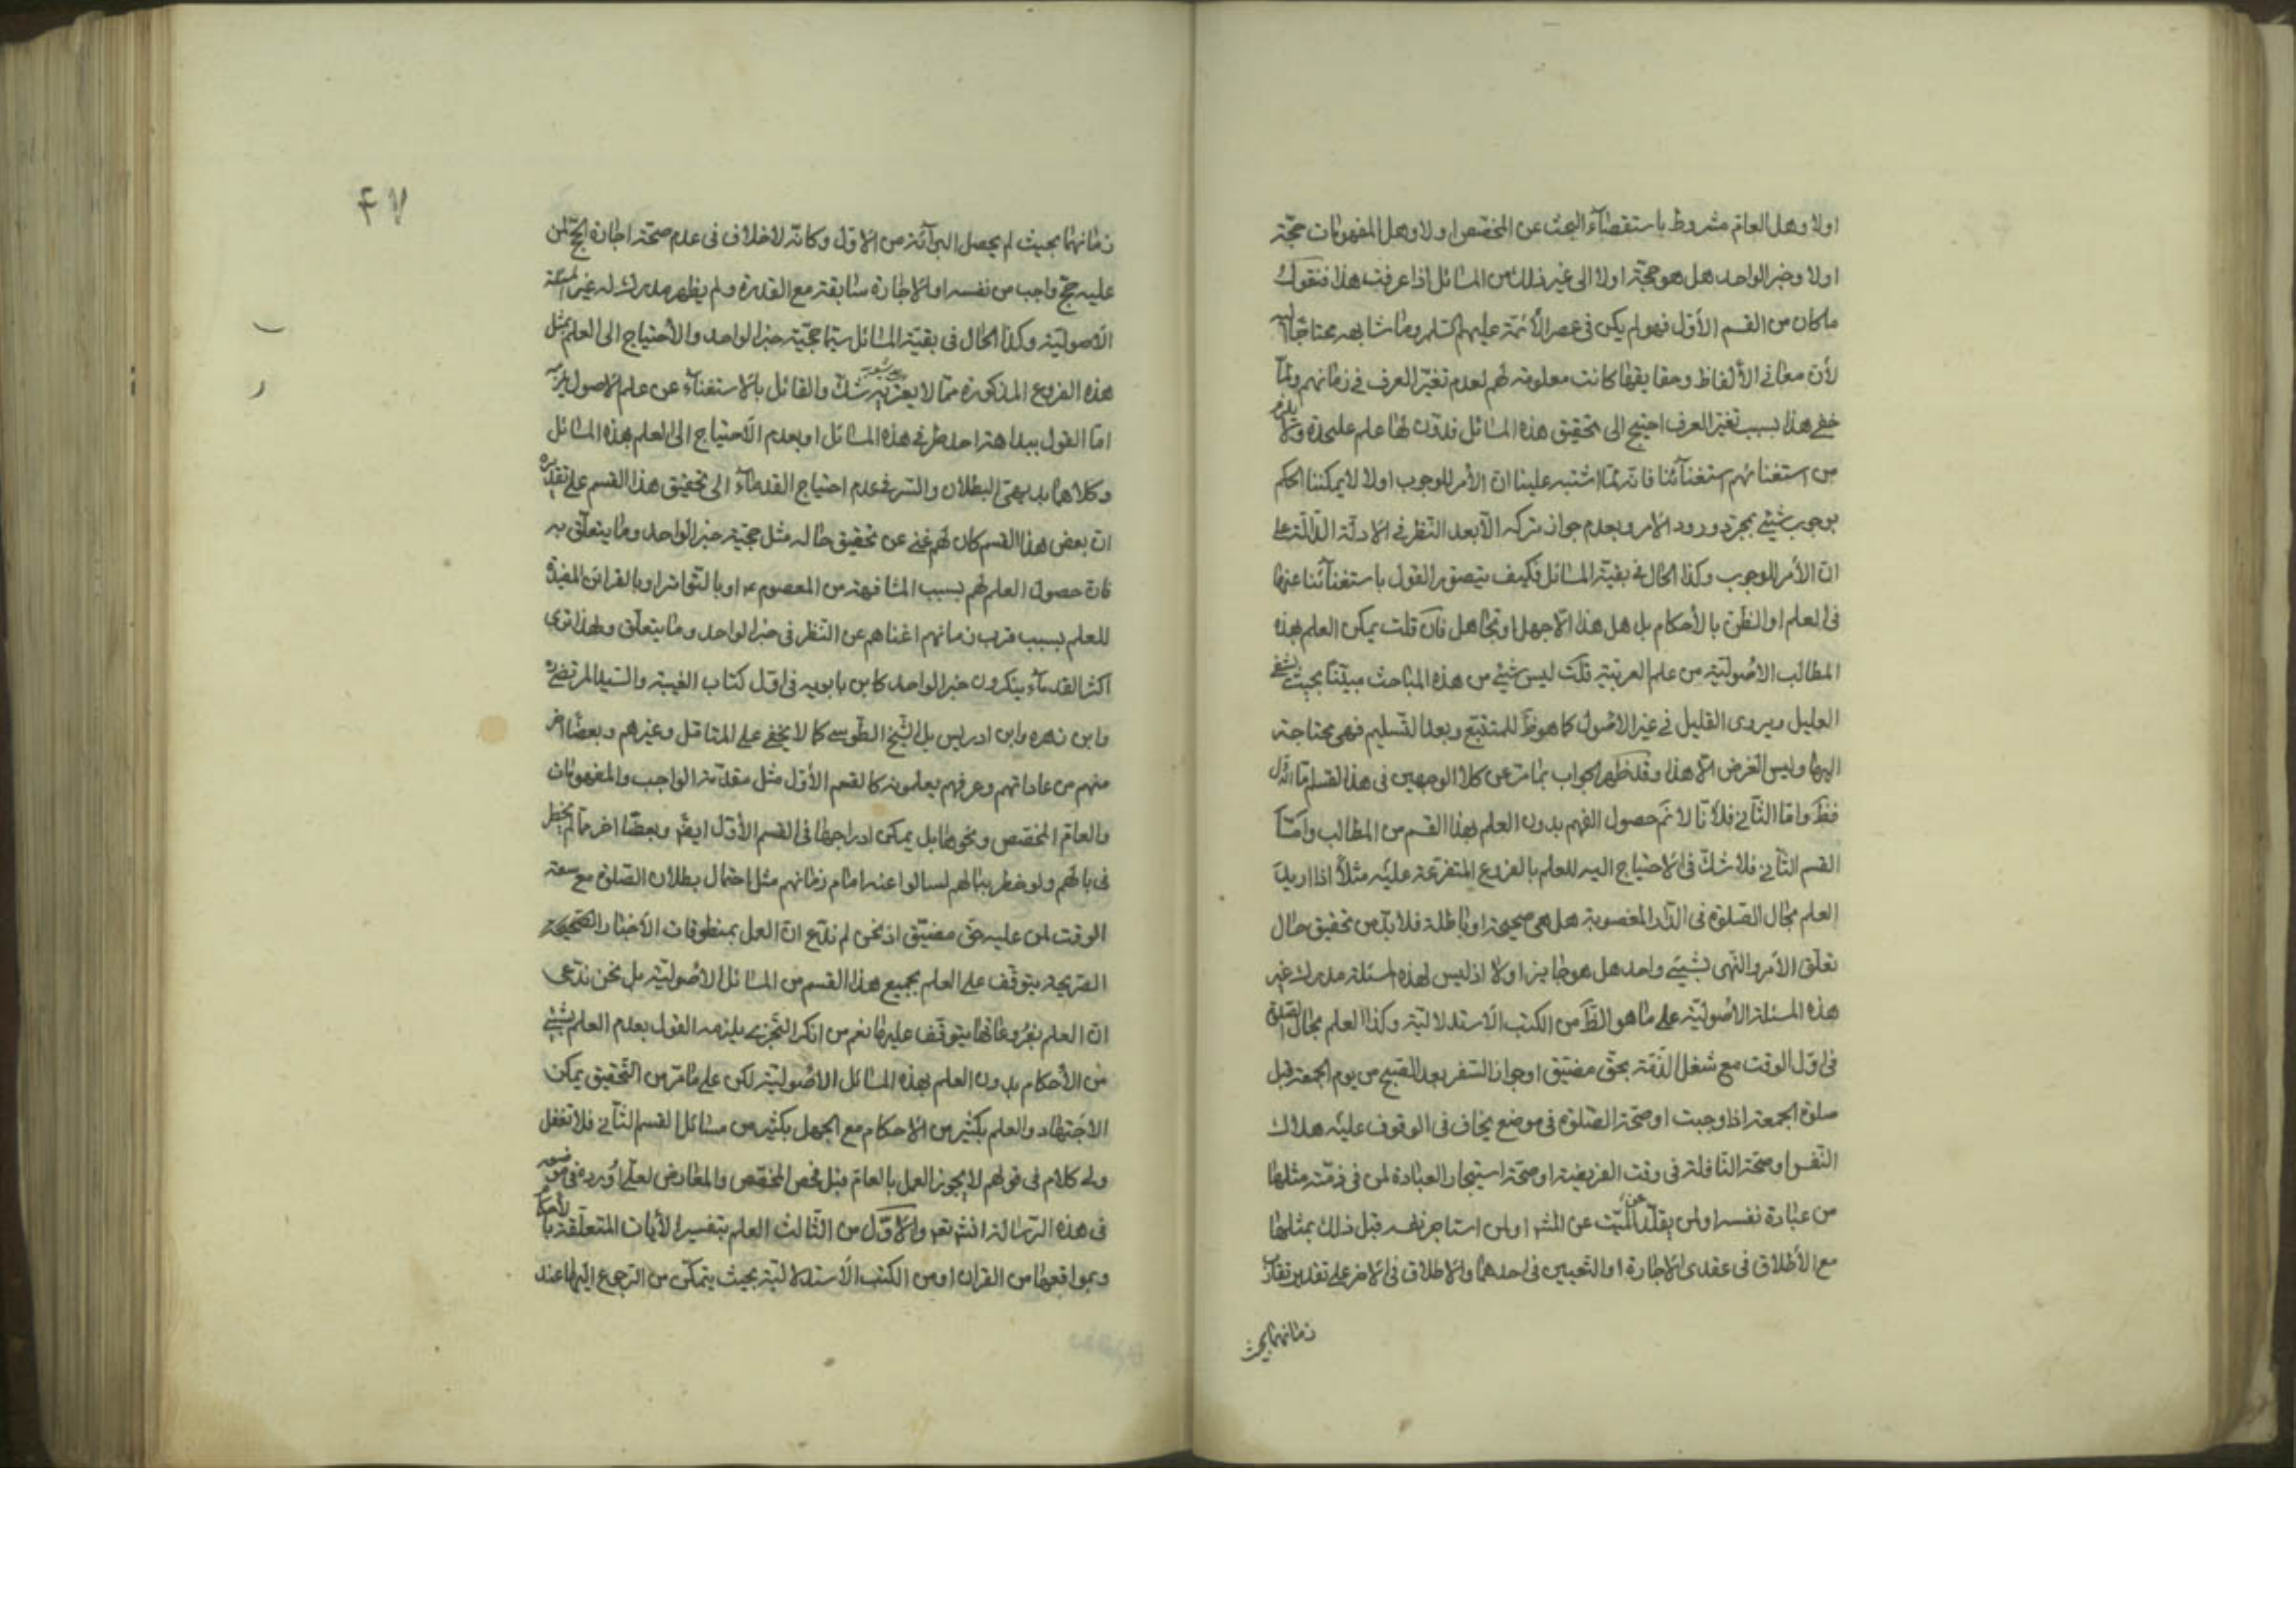 اولا وهل العام مشروط باستقصاء البحث عن المخصص اولا وهل المفهومات حجة
اولا وخبر الواحد هل هو حجة اولا الى غير ذلك من المسائل اذا عرفت هذا فنقول
ما كان من القسم الأول فهو لم يكن فى عصر الأئمة عليهم السلم وما شابهه محتاجا اليه
لأن معانى الألفاظ وحقايقها كانت معلومة لهم لعدم تغير العرف فى زمانهم ولما
خفى هذا بسبب تغير العرف احتيج الى تحقيق هذه المسائل فدون لها علم عليحدة ولا يلزم
من استغنائهم استغنائنا فانه لما اشتبه علينا ان الأمر للوجوب اولا لا يمكننا الحكم
بوجوب شيئ بمجرد ورود الامر وبعدم جواز تركه الا بعد النظر فى الادلة الدالة على
ان الأمر للوجوب وكذا الحال فى بقية المسائل فكيف يتصور القول باستغنائنا عنها
فى العلم او الظن بالأحكام بل هل هذا الا جهل او تجاهل فان قلت يمكن العلم بهذه
المطالب الاصولية من علم العربية قلت ليس شيئ من هذه المباحث مبينا بحيث يشفى
العليل ويروى القليل فى غير الاصول كما هو ظ للمتتبع وبعد التسليم فهى محتاجة
اليها وليس الغرض الا هذا وقد ظهر الجواب بما مر عن كلا الوجهين فى هذا القسم اما الاول
فظ واما الثانى فلأنا لا نم حصول الفهم بدون العلم بهذا القسم من المطالب واما
القسم الثانى فلا شك فى الاحتياج اليه للعلم بالفروع المتفرعة عليه مثلا اذا اريد
العلم بحال الصلوة فى الدار المغصوبة هل هى صحيحة او باطلة فلا بد من تحقيق حال
تعلق الأمر والنهى بشيئ واحد هل هو جايز اولا اذ ليس لهذه المسئلة مدرك غير
هذه المسئلة الاصولية على ما هو الظ من الكتب الاستدلالية وكذا العلم بحال الصلوة
فى اول الوقت مع شغل الذمة بحق مضيق او جواز السفر بعد الصبح من يوم الجمعة قبل
صلوة الجمعة اذا وجبت او صحة الصلوة فى موضع يخاف فى الوقوف عليه هلاك
النفس او صحة النافلة فى وقت الفريضة او صحة استيجار العبادة لمن فى ذمته مثلها
من عبادة نفسه او لمن يقلد الميت عن المشر او لمن استاجر نفسه قبل ذلك بمثلها
مع الأطلاق فى عقدى الاجارة او التعيين فى احدهما والاطلاق فى الاخر على تقدير تقارب
زمانهما بحيث
٤٧
زمانهما بحيث لم يحصل البرائة من الاول وكانه لا خلاف فى عدم صحة اجارة الحج لمن
عليه حج واجب من نفسه او الاجارة سابقة مع القدرة ولم يظهر مدرك له غير المسئلة
الاصولية وكذا الحال فى بقية المسائل سيما حجية خبر الواحد والأحتياج الى العلم بمثل
هذه الفروع المذكورة مما لا يعتريه شك والقائل بالاستغناء عن علم الاصول يلزمه
اما القول ببداهة احد طرفى هذه المسائل او بعدم الأحتياج الى العلم بهذه المسائل
وكلاهما بديهى البطلان والسر فى عدم احتياج القدماء الى تحقيق هذا القسم على تقديره
ان بعض هذا القسم كان لهم غنى عن تحقيق حاله مثل حجية خبر الواحد وما يتعلق به
فان حصول العلم لهم بسبب المشافهة من المعصوم ع او بالتواتر او بالقرائن المفيدة
للعلم بسبب قرب زمانهم اغناهم عن النظر فى خبر الواحد وما يتعلق ولهذا ترى
اكثر القدماء ينكرون خبر الواحد كابن بابويه فى اول كتاب الغيبة والسيد المرتضى ره
وابن زهره وابن ادريس بل الشيخ الطوسى كما لا يخفى على المتامل وغيرهم وبعضا اخر
منهم من عاداتهم وعرفهم يعلمونه كالقسم الأول مثل مقدمة الواجب والمفهومات
والعام المخصص ونحوها بل يمكن ادراجها فى القسم الأول ايض وبعضا اخر مما لم يخطر
فى بالهم ولو خطر ببالهم لسالوا عنه امام زمانهم مثل احتمال بطلان الصلوة مع سعة
الوقت لمن عليه حق مضيق اذ نحن لم ندع ان العمل بمنطوقات الأخبار الصحيحة
الصريحة يتوقف على العلم بجميع هذا القسم من المسائل الاصولية بل نحن ندعى
ان العلم بفروعاتها يتوقف عليها نعم من انكر التجزى يلزمه القول بعدم العلم بشيئ
من الأحكام بدون العلم بهذه المسائل الاصولية لكن على ما مر من التحقيق يمكن
الاجتهاد والعلم بكثير من الاحكام مع الجهل بكثير من مسائل القسم الثانى فلا تغفل
ولى كلام فى قولهم لا يجوز العمل بالعام قبل فحص المخصص والمعارض لعلى اورده فى موضعه
فى هذه الرسالة انش تعم والاول من الثالث العلم بتفسير الأيات المتعلقة بالأحكام
وبمواقعها من القران او من الكتب الاستدلالية بحيث يتمكن من الرجوع اليها عند